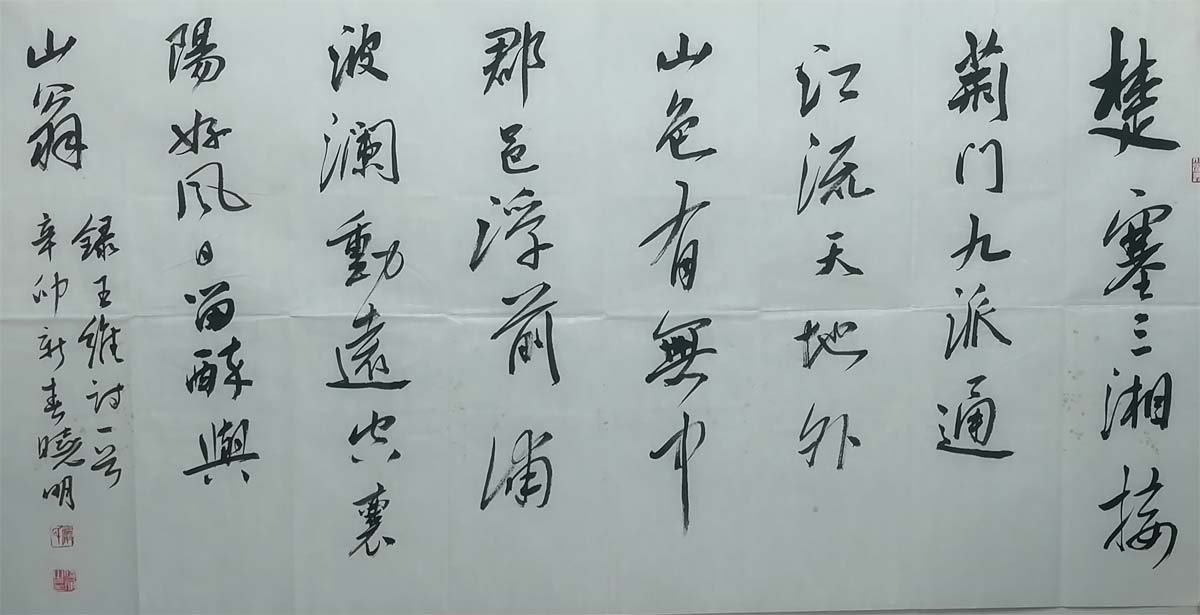 楚塞三湘接
荊门九派通
江流天地外
山色有無中
郡邑浮前浦
波瀾動遠空襄
陽好風日留醉與
山翁
錄王維詩一首
辛卯新春曉明